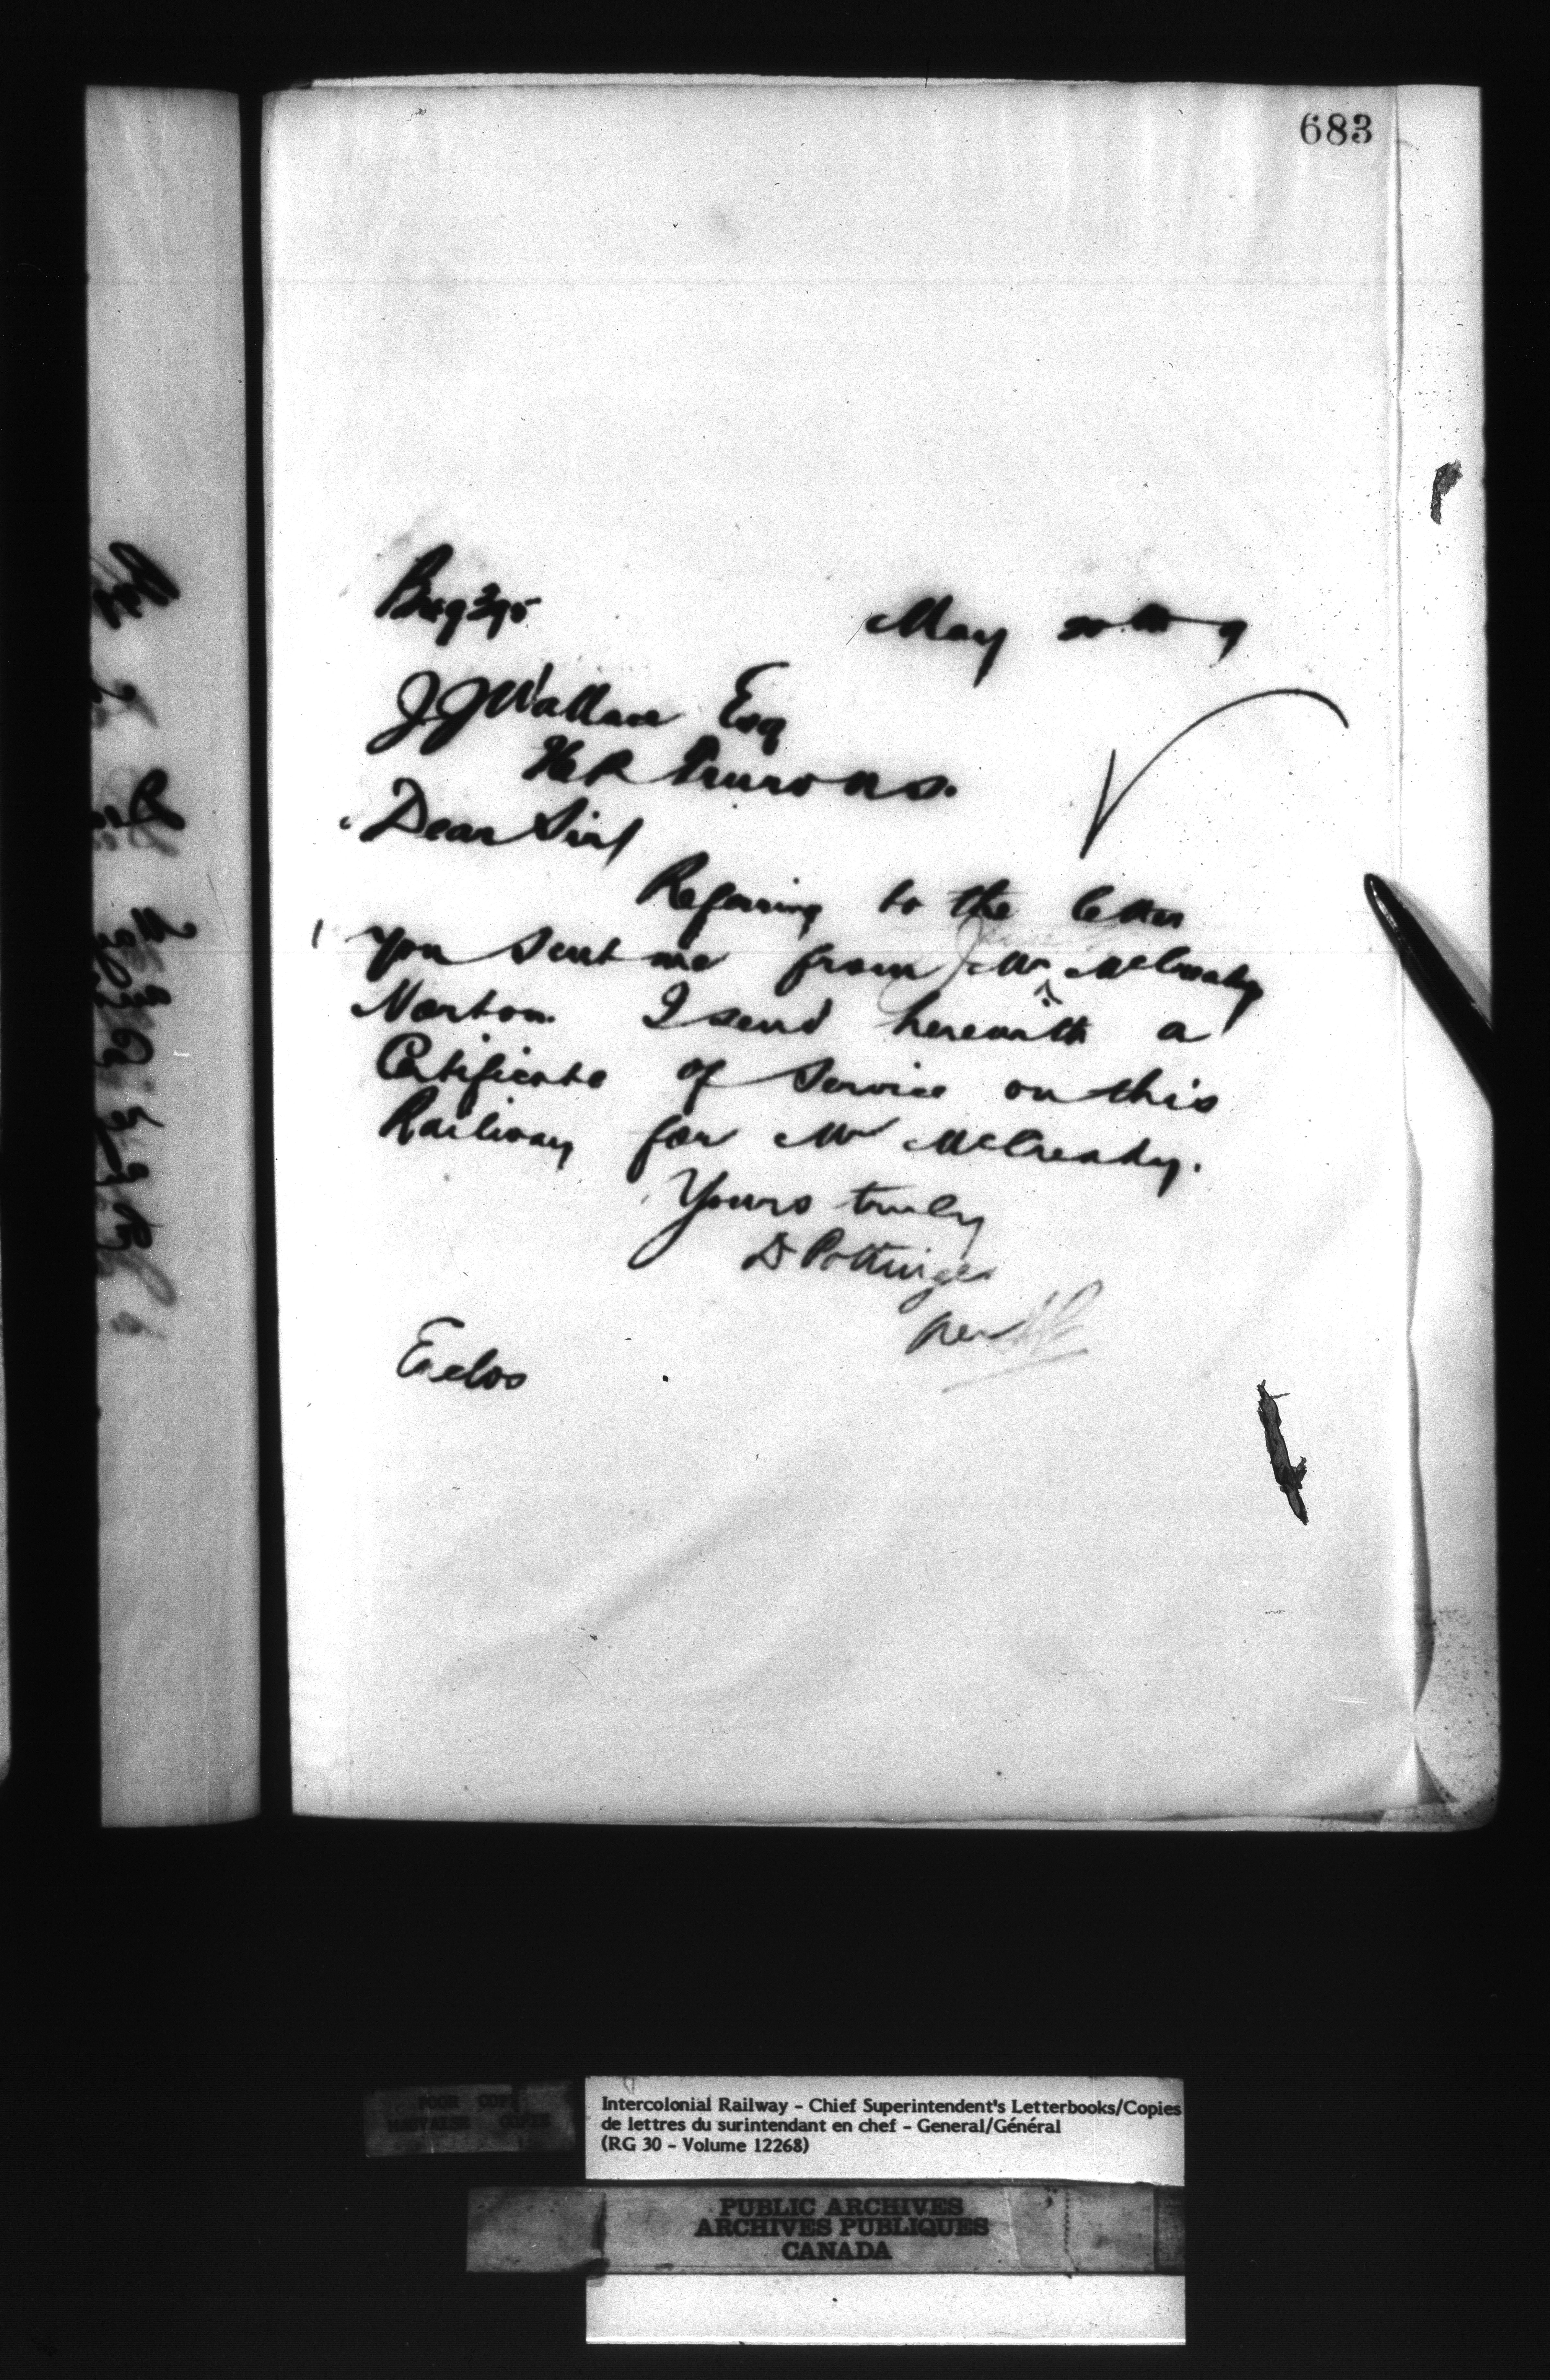 683
May 20th 9
J.J. Wallace Esq
Truro N.S.
Dear Sir/
Referring to the letter
you sent me from Mr McCready
Norton I send herewith a
Certificate of Service on this
Railway for Mr McCready.
Yours truly
D Pottinger
per
Enclos
POOR COPY
MAUVAISE COPIE
Intercolonial Railway – Chief Superintendent's Letterbooks/Copies
de lettres du surintendant en chef – General/Général
(RG 30 – Volume 12268)
PUBLIC ARCHIVES
ARCHIVES PUBLIQUES
CANADA